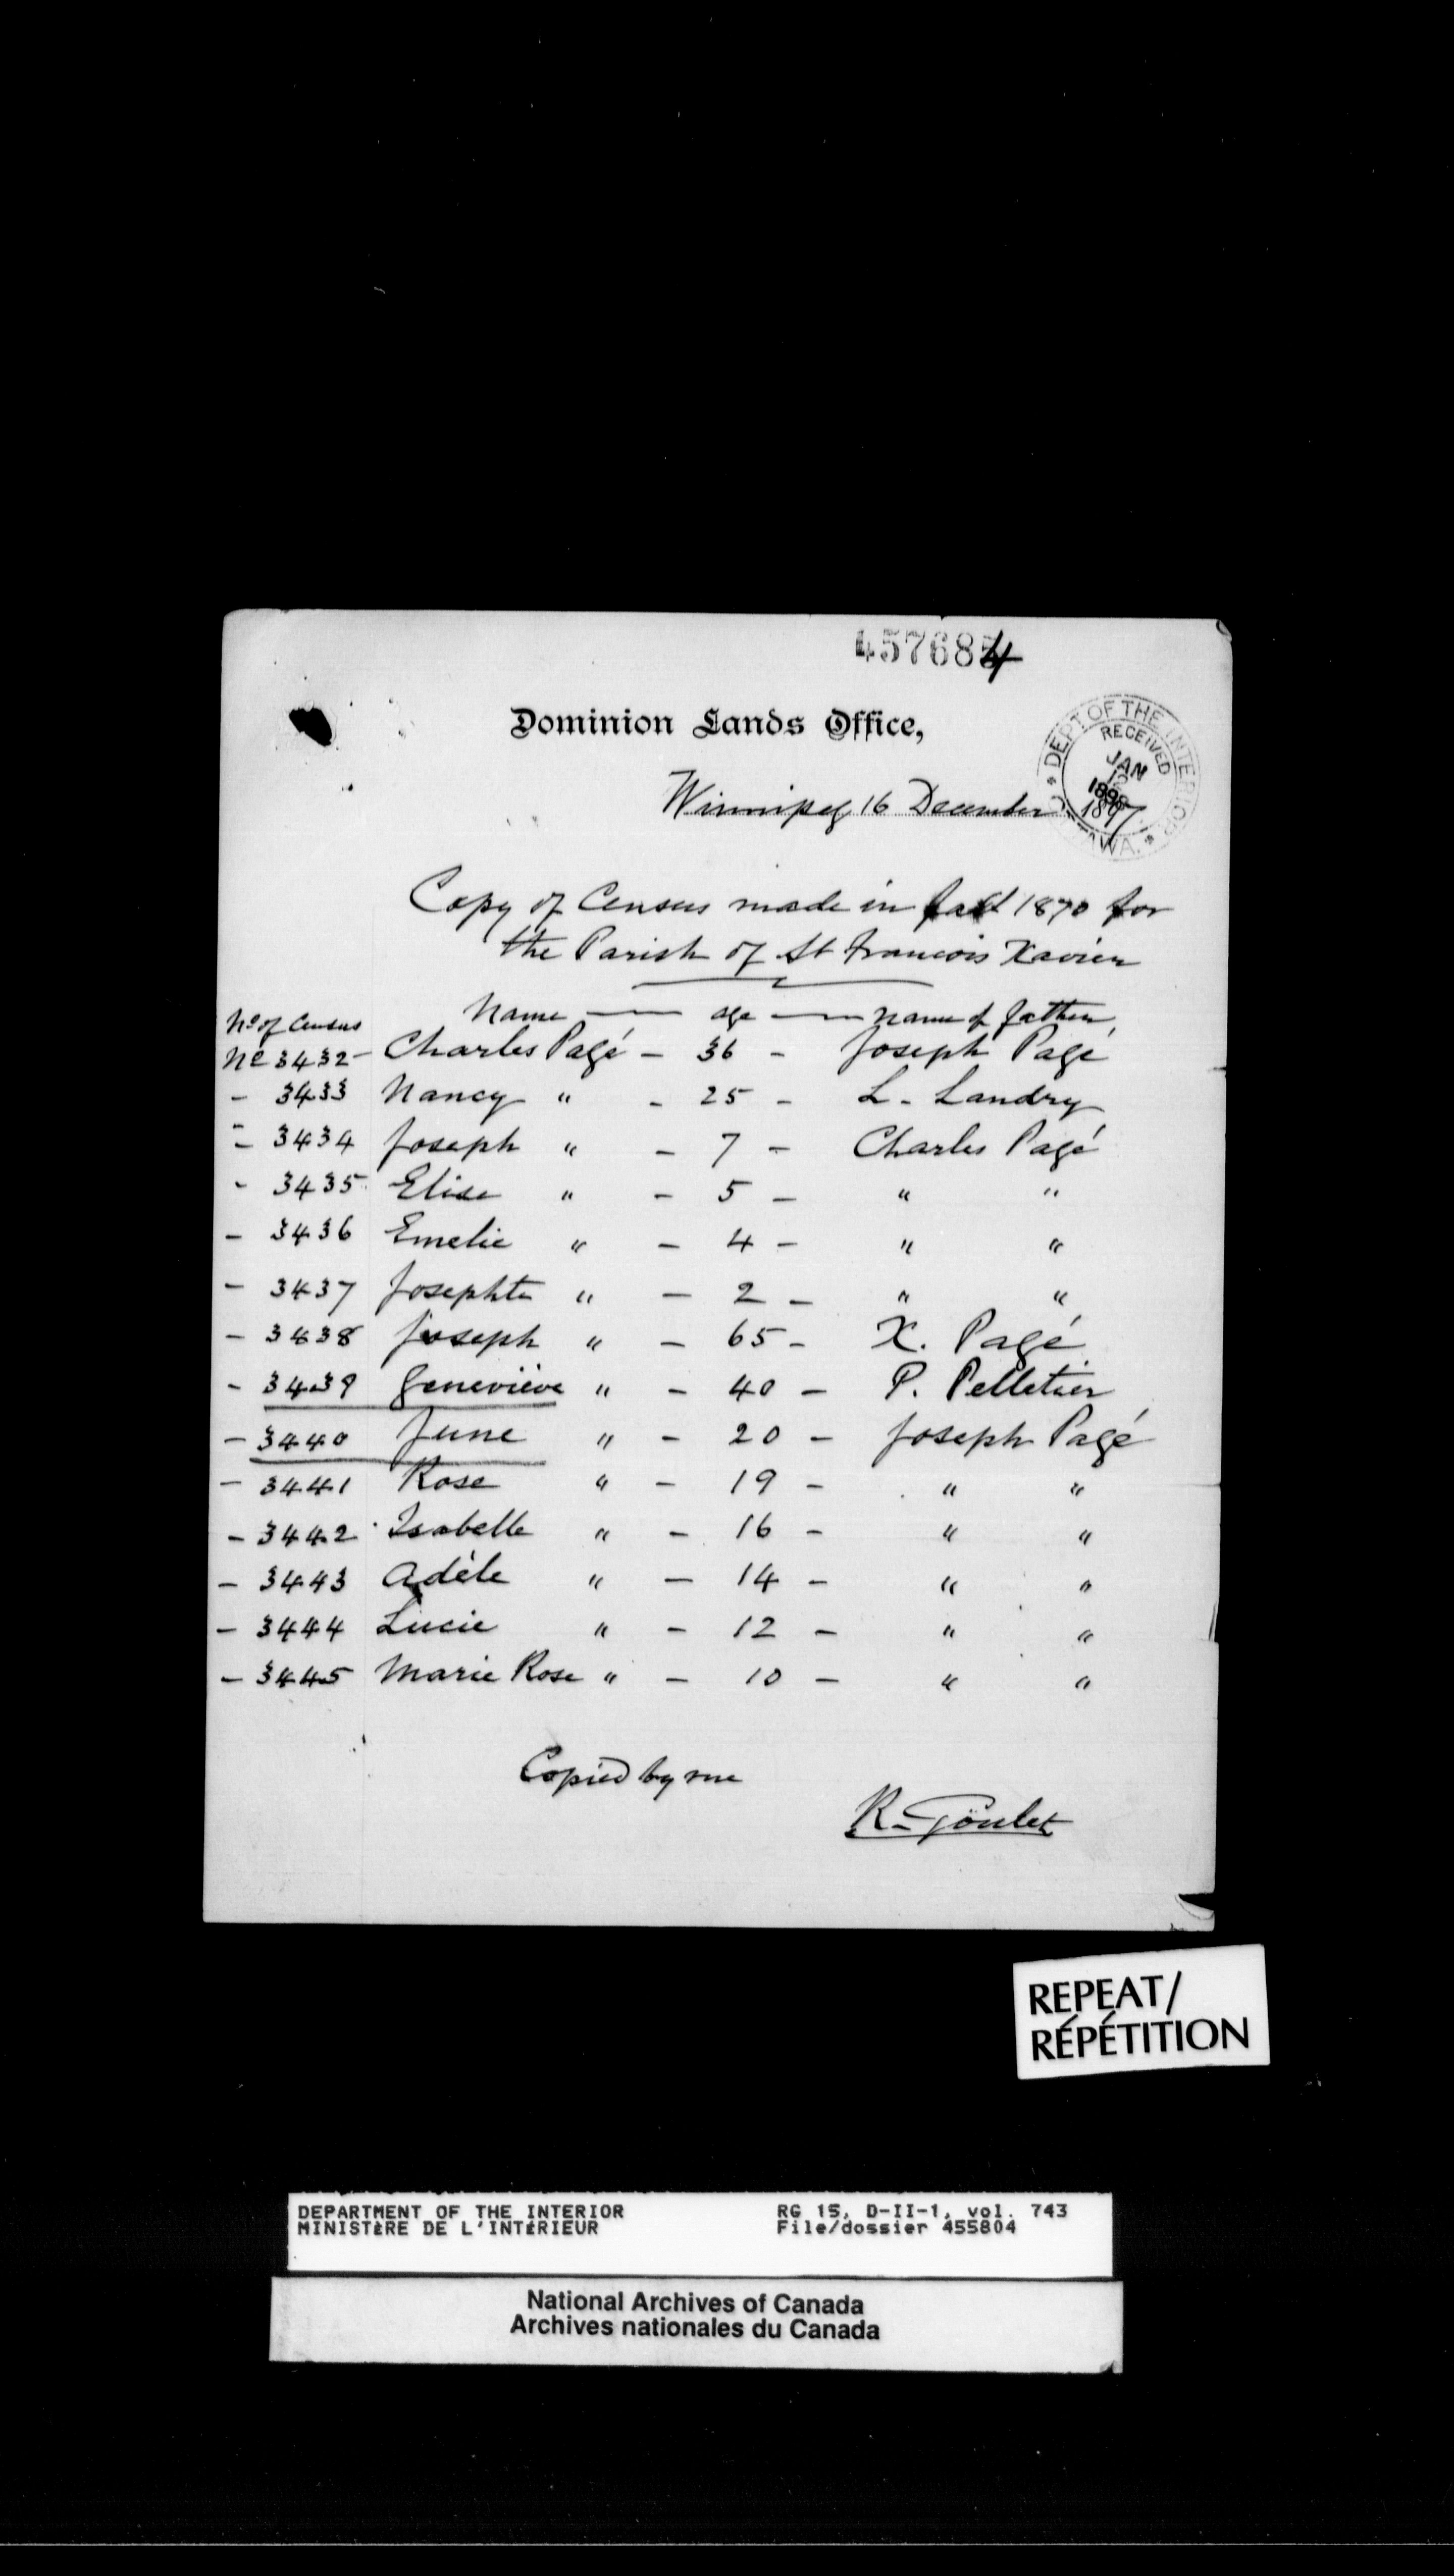 457684
Dominion Lands Office,
DEPT. OF THE INTERIOR
RECEIVED
JAN
12
1898
Winnipeg 16 December 1897
Copy of Census made in fall 1870 for
the Parish of St Francois Xavier
No of Census Name — age — name of father
No 3432 - Charles Pagé - 36 - Joseph Pagé
- 3433 Nancy " - 25 - L. Landry
- 3434 Joseph " - 7 - Charles Pagé
- 3435 Elise " - 5 - " "
- 3436 Emelie " - 4 - " "
- 3437 Josephte " - 2 - " "
- 3438 Joseph " - 65 - X. Pagé
- 3439 Geneviève " - 40 - P. Pelletier
- 3440 June " - 20 - Joseph Pagé
- 3441 Rose " - 19 - " "
- 3442 Isabelle " - 16 - " "
- 3443 Adèle " - 14 - " "
- 3444 Lucie " - 12 - " "
- 3445 Marie Rose " - 10 - " "
Copied by me
R. Goulet
REPEAT/
RÉPÉTITION
DEPARTMENT OF THE INTERIOR RG 15, D-II-1, vol. 743
MINISTÈRE DE L'INTÉRIEUR File/dossier 455804
National Archives of Canada
Archives nationales du Canada